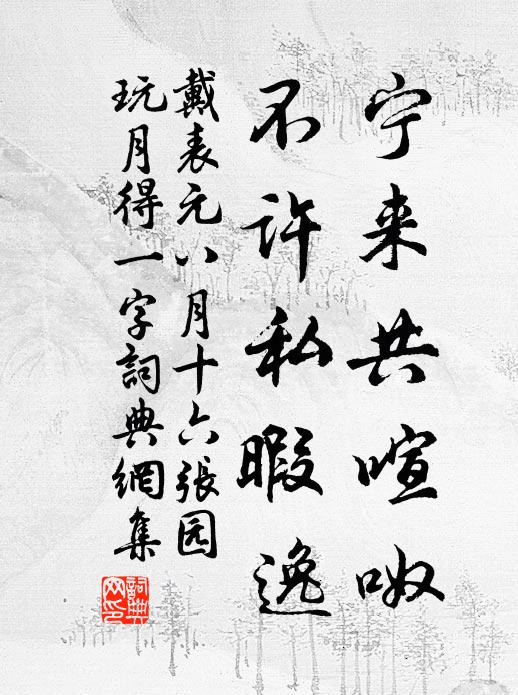 宁来共喧呶
不许私暇逸
戴表元八月十六張园
玩月得一字詞典網集
詞典
网印